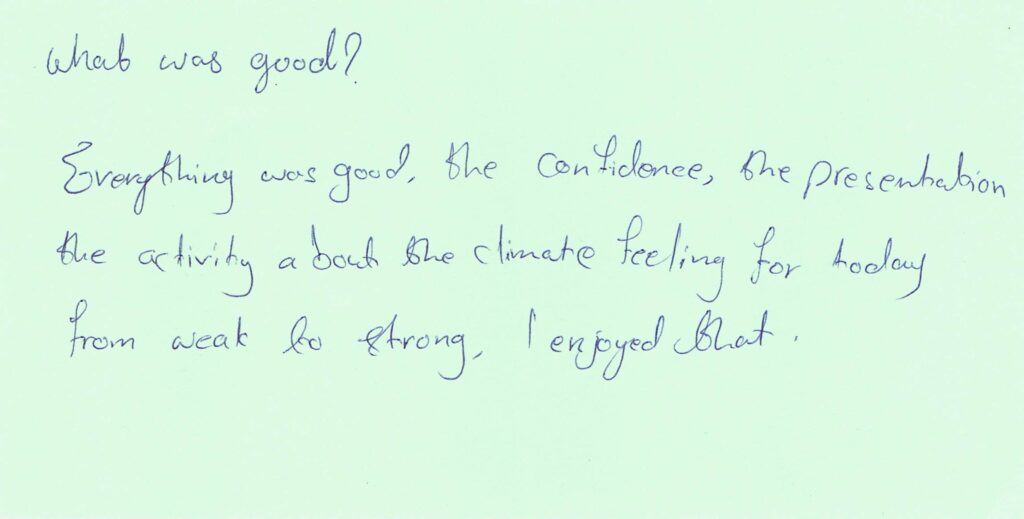 What was good?
Everything was good, the confidence, the presentation
the activity about the climate feeling for today
from weak to strong, I enjoyed that.